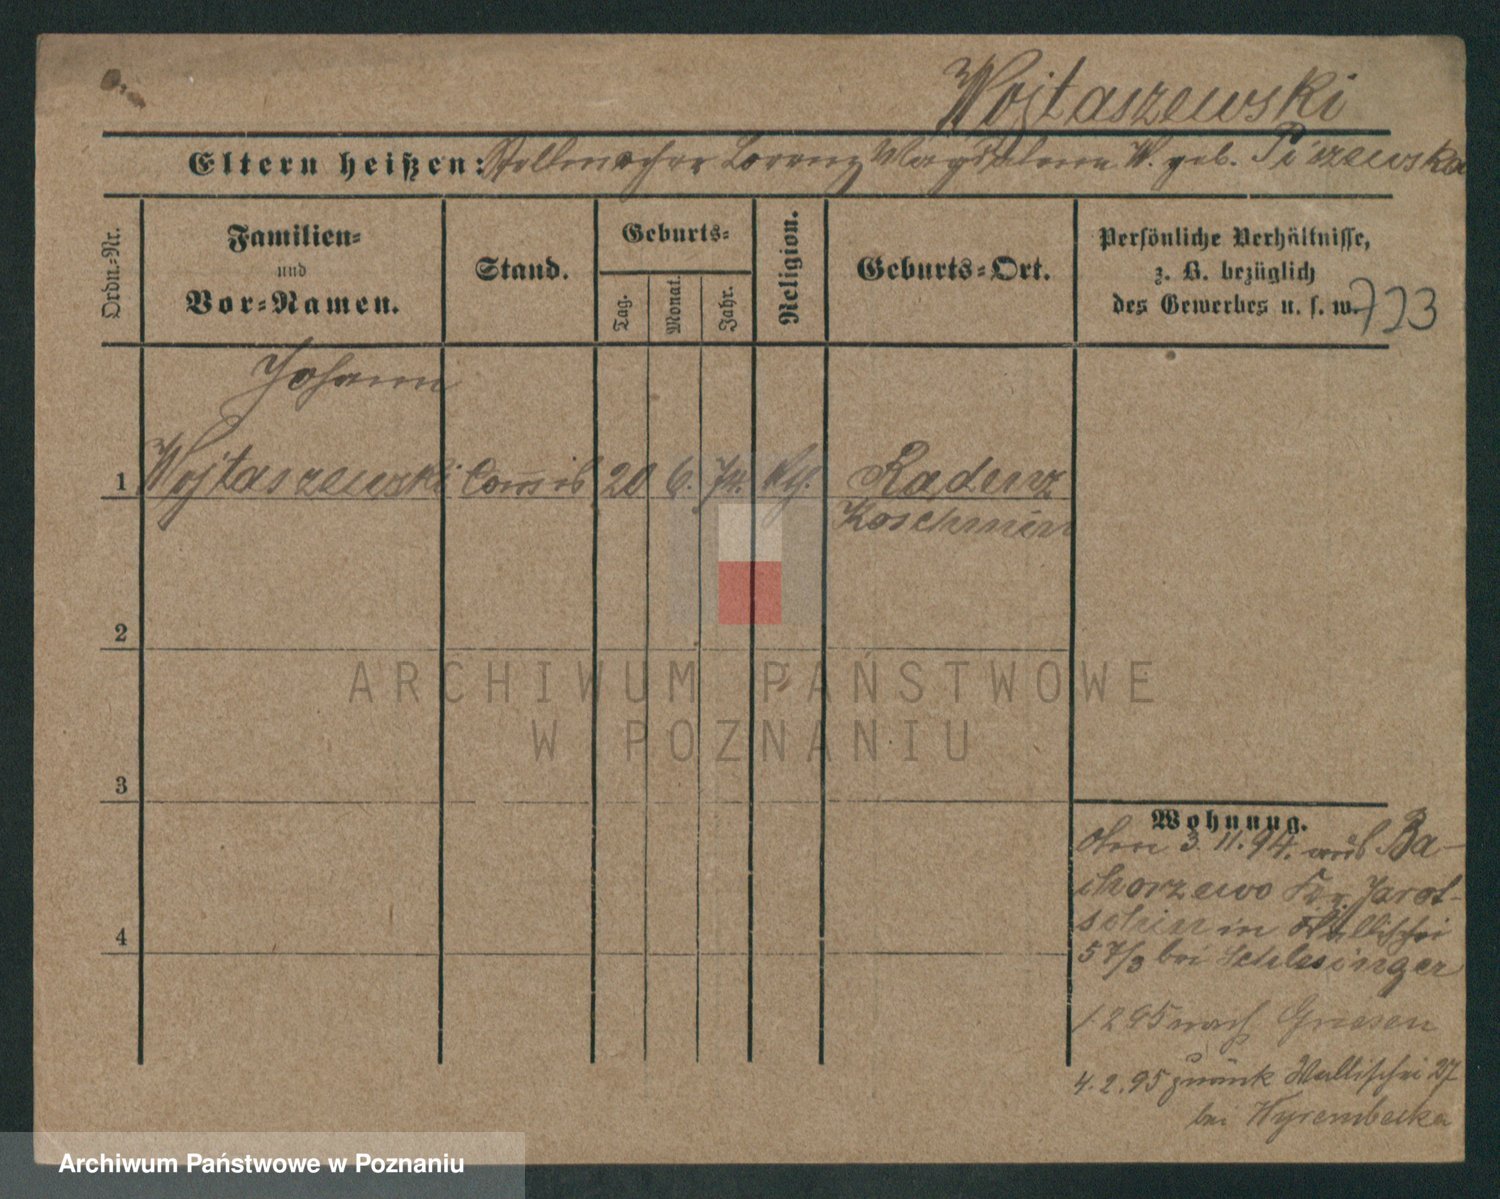 Wojtaszewski
Eltern heißen: Stellmacher Lorenz Magdalena W. geb.
Ordn.-Nr.
Familien-
und
Vor-Namen.
Stand.
Geburts-
Tag.
Monat.
Jahr.
Religion.
Geburts-Ort.
Persönliche Verhältnisse,
z. B. bezüglich
des Gewerbes u. s. w.
723
Johann
1 Wojtaszewski Comis 20 6. 74. Radenz
Koschmin
2
3
4
Wohnung.
3. 11. 94. aus Ba-
chorzewo Kr. Jarot-
schin in Wallischei
57/3 bei Schlesinger
1 2 95 nach Gnesen
4. 2. 95 zurück Wallischei 27
bei
ARCHIWUM PAŃSTWOWE
W POZNANIU
Archiwum Państwowe w Poznaniu